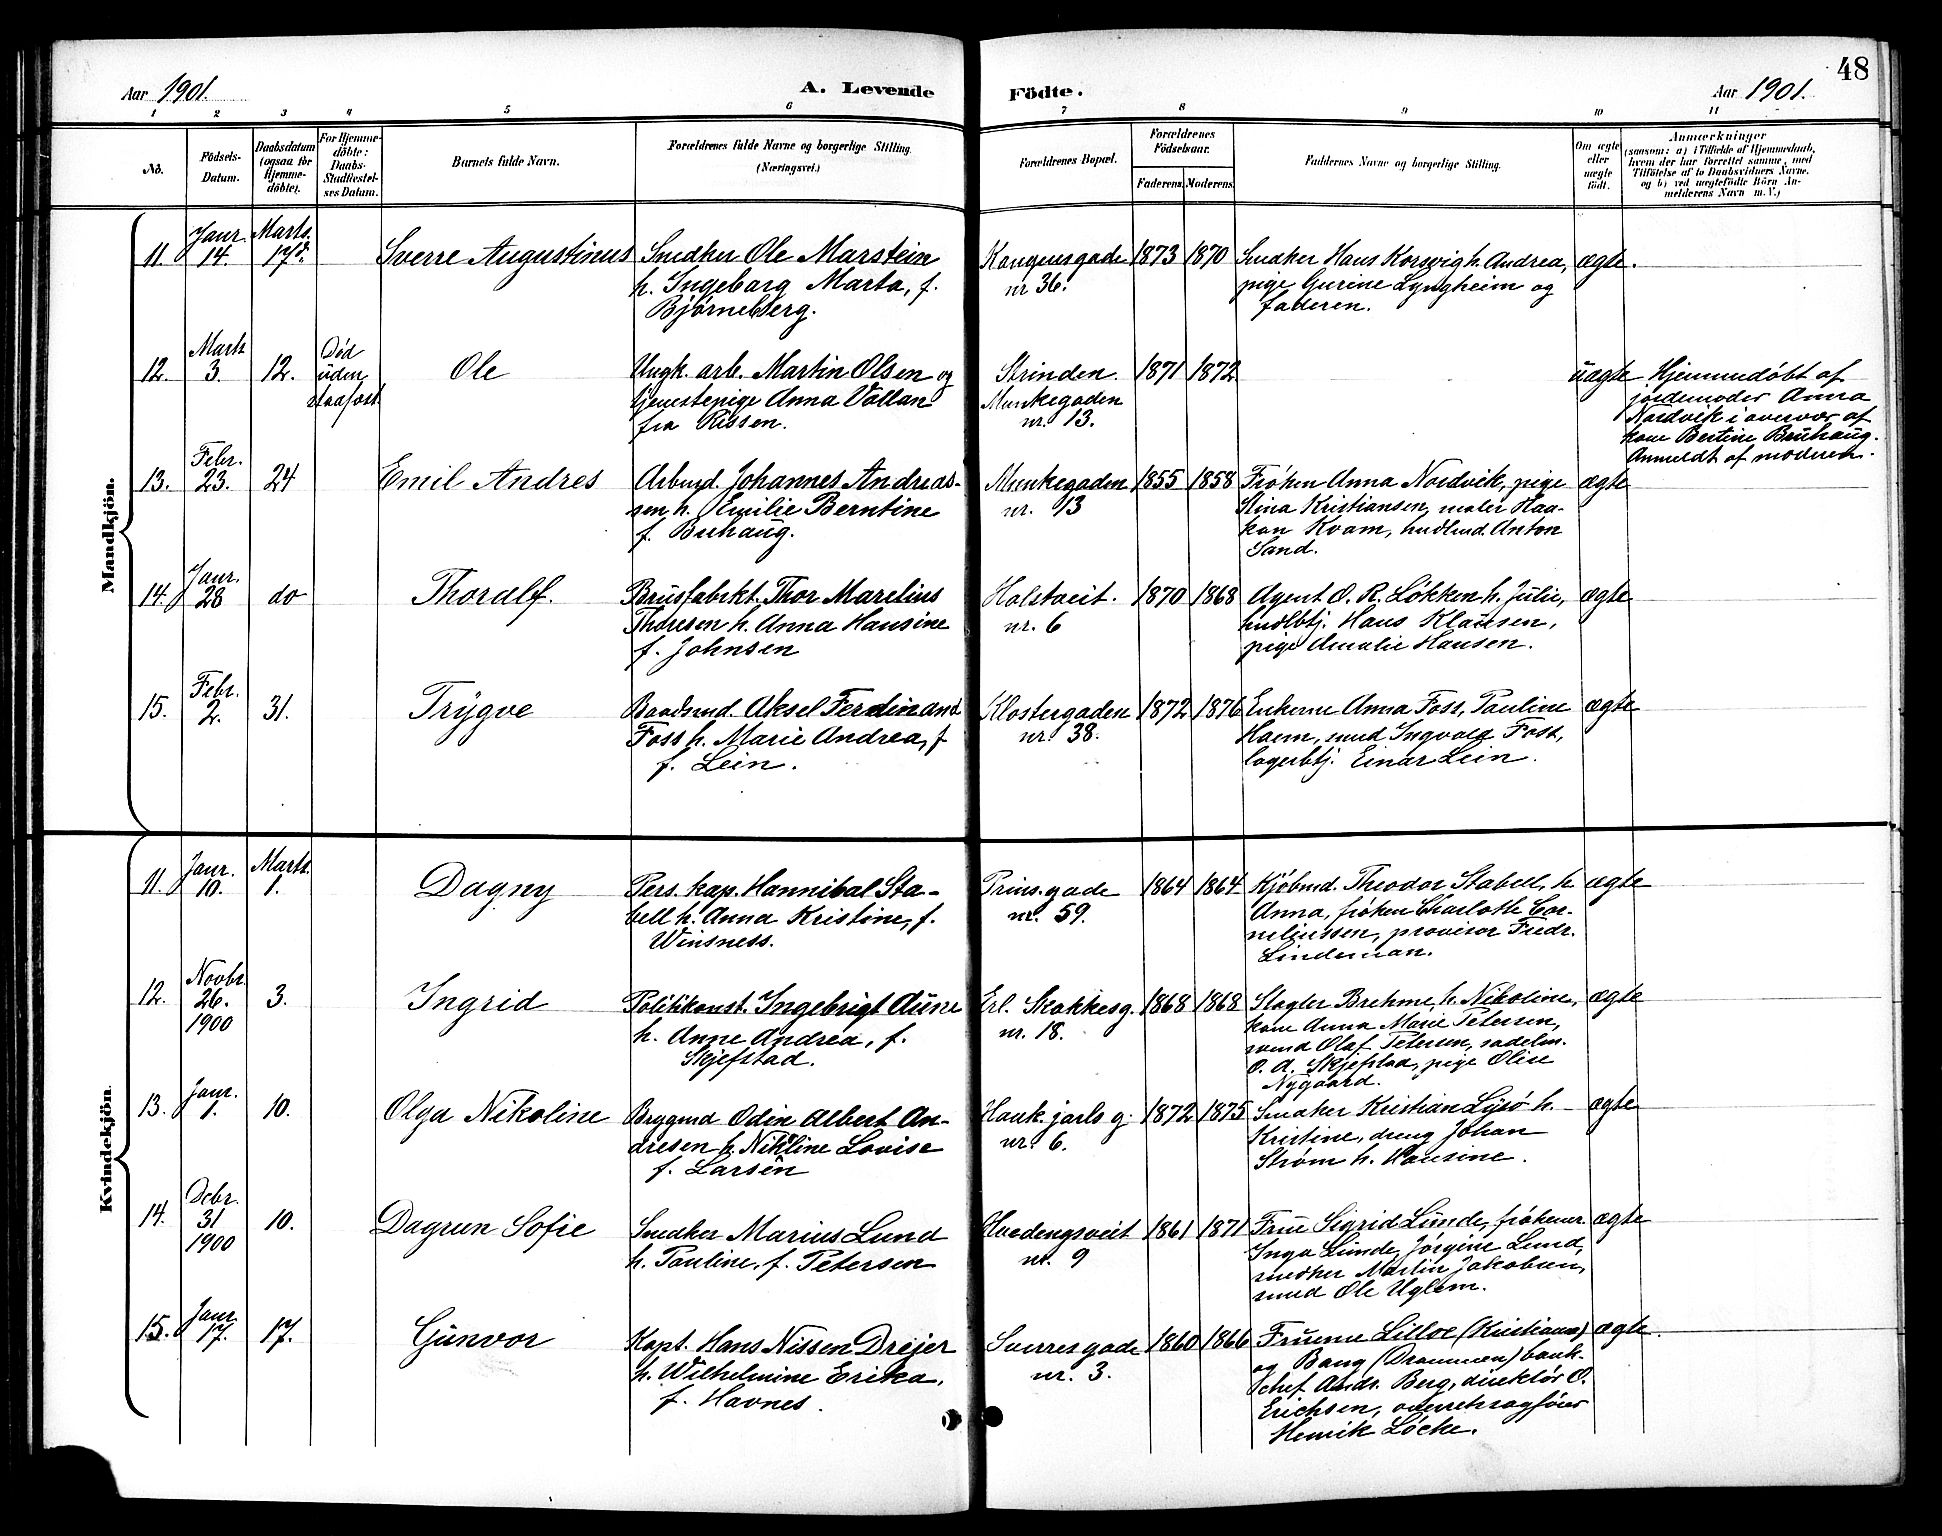 48
Aar 1901.
A. Levende Födte.
Aar 1901.
1 2 3 4 5 6 7 8 9 10 11
No.
Födsels-Datum.
Daabsdatum (ogsaa för Hjemme-döbte).
For Hjemme-döbte: Daabs-Stadfæstel-ses Datum.
Barnets fulde Navn.
Forældrenes fulde Navne og borgerlige Stilling.
(Næringsvei.)
Forældrenes Bopæl.
Forældrenes Födselsaar.
Faderens. Moderens.
Faddernes Navne og borgerlige Stilling.
Om ægte eller uægte födt.
Anmærkninger
(saasom: a) i Tilfælde af Hjemmedaab,
hvem der har forrettet samme, med
Tilföielse af to Daabsvidners Navne,
og b) ved uægtefödte Börn An-
melderens Navn m. V.)
Mandkjön.
11. Janr. 14. Marts. 17d. Sverre Augustinus
Snedker Ole Marstein
h. Ingeborg Marta, f.
Bjørneberg.
Kongensgade
nr 36.
1873 1870
Snedker Hans Korsvig h. Andrea,
pige Gurine Lyngheim og
faderen.
ægte.
12. Marts 3. 12. Død uden stadfæst. Ole
Ungk. arb. Martin Olsen og
tjenestepige Anna Vollan
fra Rissen.
Strinden.
Munkegaden
nr. 13.
1871 1872
uægte
Hjemmedøbt af
jordemoder Anna
Nordvik i overvær af
kone Bertine Bruhaug.
Anmeldt af moderen.
13. Febr. 23. 24 Emil Andres
Arbmd. Johannes Andreas-
sen h. Emilie Berntine
f. Buhaug.
Munkegaden
nr. 13
1855 1858
Frøken Anna Nordvik, pige
Stina Kristiansen, maler Haa-
kon Kvam, hndlmd. Anton
Sand.
ægte
14. Janr. 28 do Thoralf.
Brusfabrkt. Thor Marelius
Thoresen h. Anna Hansine
f. Johnsen
Holstveit.
nr. 6
1870 1868
Agent O. R. Løkken h. Julie,
hndlbtj. Hans Klausen,
pige Amalie Hansen.
ægte
15. Febr. 2. 31. Trygve
Baadsmd. Aksel Ferdinand
Foss h. Marie Andrea, f
f. Lein.
Klostergaden
nr. 38.
1872 1876
Enkerne Anna Foss, Pauline
Haem, smed Ingvald Foss,
lagerbtj. Einar Lein.
ægte
Kvindekjön.
11. Janr. 10. Marts. 1. Dagny
Pers. kap. Hannibal Sta-
bell h. Anna Kristine, f.
Winsness.
Prins. gade
nr. 59.
1864 1864
Kjøbmd. Theodor Stabell, h.
Anna, frøken Charlotte Cor-
neliussen, provisor Fredr.
Lindeman.
ægte
12. Novbr. 26. 1900 3. Ingrid
Politikonst. Ingebrigt Aune
h. Anne Andrea, f.
Skjefstad.
Erl. Skakkesg.
nr. 18.
1868 1868
Slagter Brehme, h. Nikoline,
kone Anna Marie Petersen,
svend Olaf Petersen, sadelm.
O. A. Skjefstad, pige Olise
Nygaard.
ægte
13. Janr. 1. 10. Olga Nikoline
Brygmd Odin Albert An-
dresen h. Nikoline Lovise
f. Larsen
Hauk. jarls g.
nr. 6.
1872 1875
Snedker Kristian Lysø h.
Kristine, dreng Johan
Strøm h. Hansine.
ægte
14. Debr. 31 1900 10. Dagrun Sofie
Snedker Marius Lund
h. Pauline, f. Petersen
Hvedingsveit
nr. 9
1861 1871
Frue Sigrid Lunde, frøkener
Inga Lunde, Jørgine Lund,
snedker Martin Jakobsen,
smed Ole Uglem.
ægte
15. Janr. 17. 17. Gunvor
Kapt. Hans Nissen Drejer
h. Wilhelmine Erika,
f. Havnes.
Sverresgade
nr. 3.
1860 1866
Fruerne Lilloe (Kristiania)
og Bang (Drammen) bank-
chef Andr. Berg, direktør O.
Erichsen, overretssagfører
Henrik Løcke.
ægte.